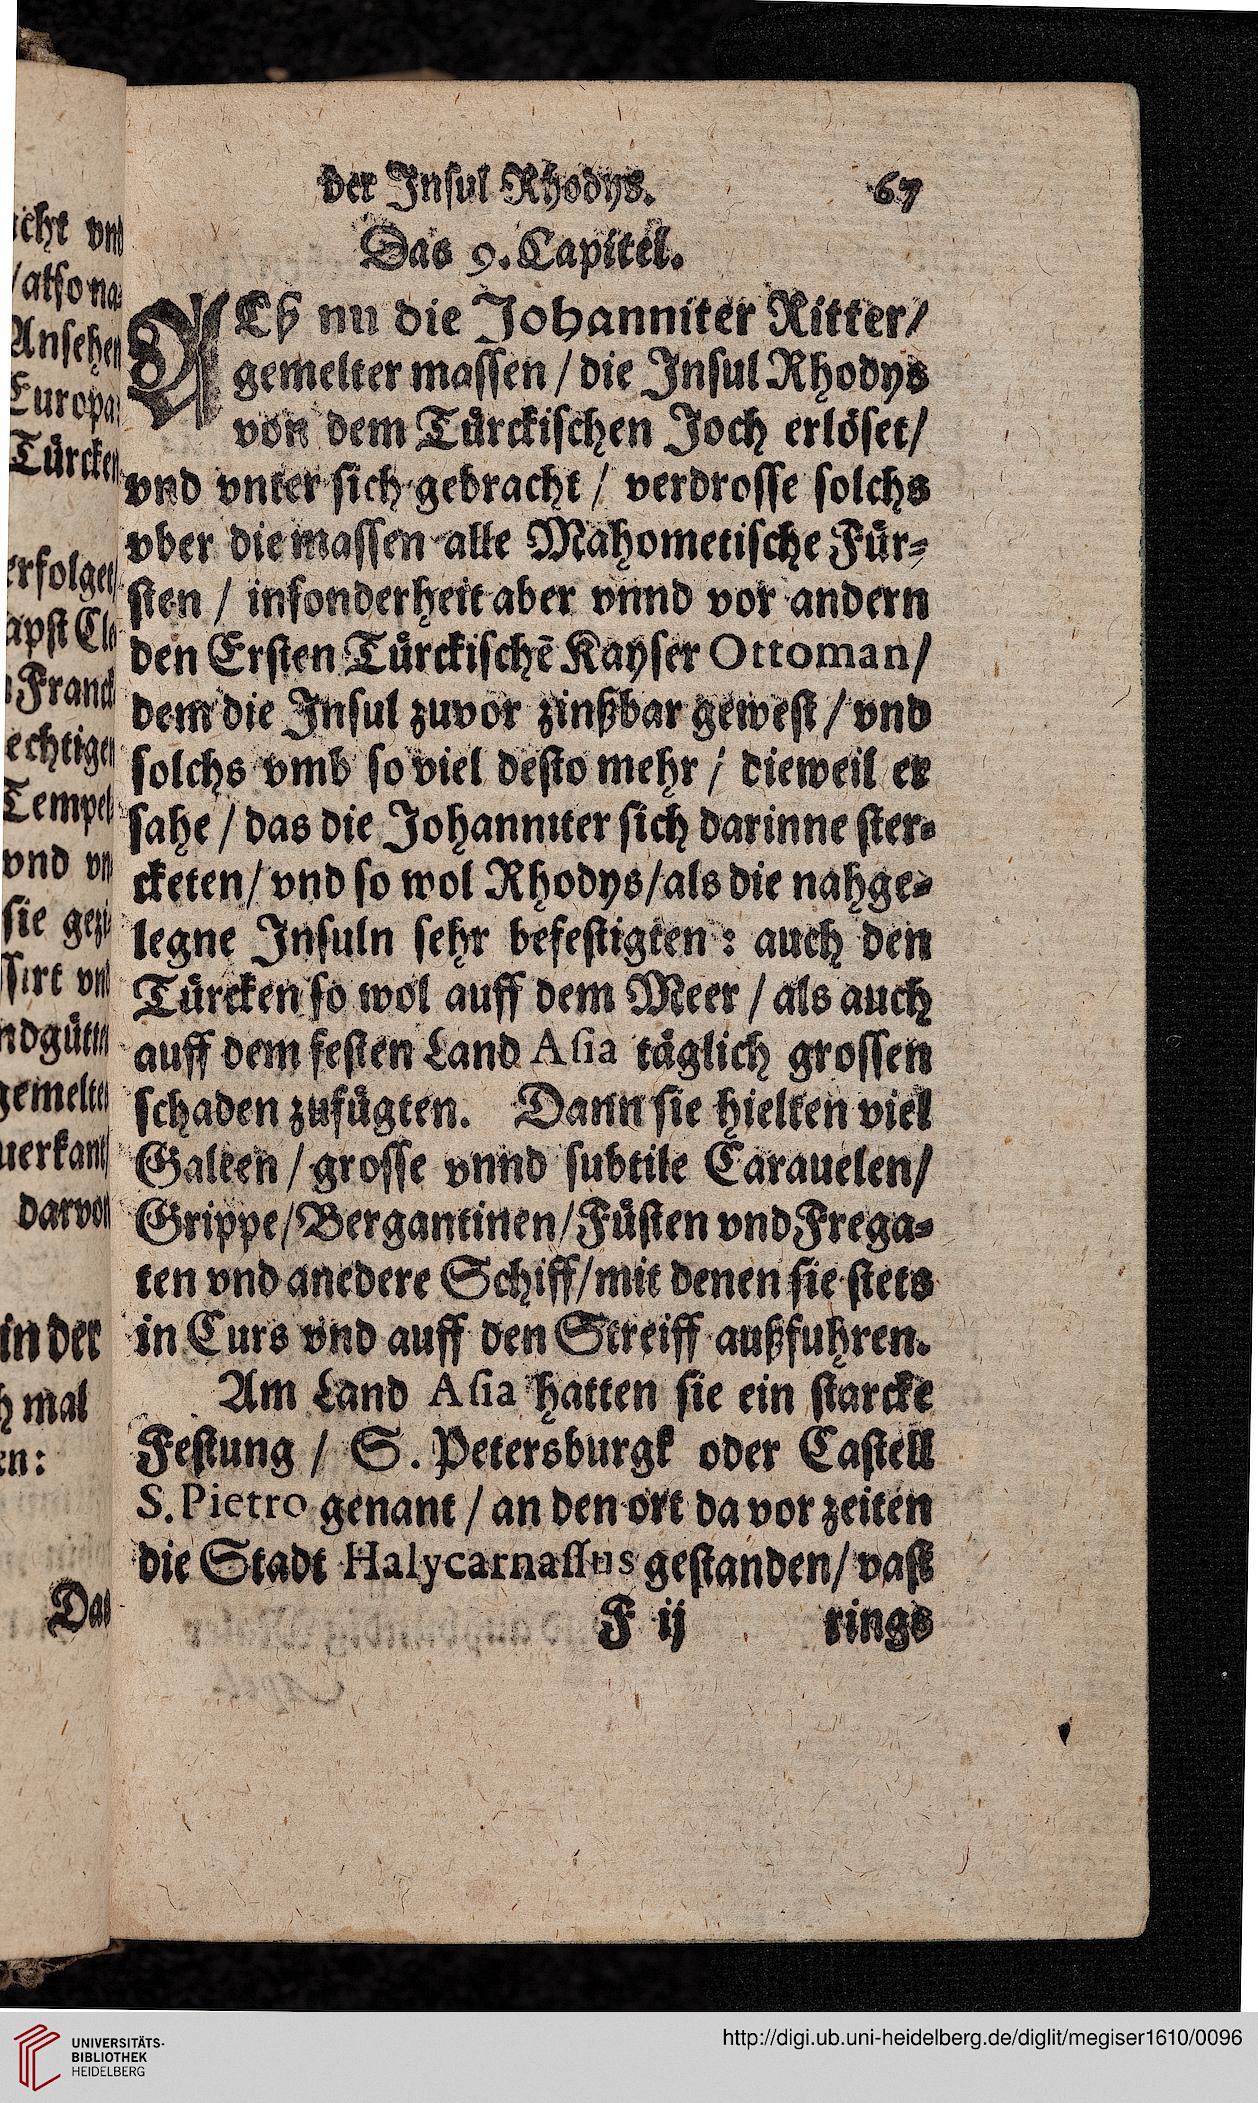 icht vnd
/also na-
Ansehen
Europa
Türcken
erfolget/
apst Cle
Franck
echtigen
Tempel
vnd vn
sie gezi
ssirt vnd
ndgütter
gemelter
uerkant/
darvon
in der
h mal
en:
Das
der Insul Rhodys. 67
Das 9. Capitel.
ALß nu die Johanniter Ritter/
gemelter massen / die Insul Rhodys
von dem Tůrckischen Joch erlöset/
vnd vnter sich gebracht / verdrosse solchs
vber die massen alle Mahometische Fůr-
sten / insonderheit aber vnnd vor andern
den Ersten Tůrckischē Kayser Ottoman/
dem die Insul zuvor zinßbar gewest / vnd
solchs vmb so viel desto mehr / dieweil er
sahe / das die Johanniter sich darinne ster-
cketen/ vnd so wol Rhodys/als die nahge-
legne Insuln sehr befestigten : auch den
Tůrcken so wol auff dem Meer / als auch
auff dem festen Land Asia tåglich grossen
schaden zufůgten. Dann sie hielten viel
Galeen / grosse vnnd subtile Carauelen/
Grippe/Bergantinen/Fůsten vnd Frega-
ten vnd anedere Schiff/mit denen sie stets
in Curs vnd auff den Streiff außfuhren.
Am Land Asia hatten sie ein starcke
Festung / S. Petersburgk oder Castell
S. Pietro genant / an den ort da vor zeiten
die Stadt Halycarnassus gestanden/ vast
F ij rings
UNIVERSITÄTS-
BIBLIOTHEK
HEIDELBERG
http://digi.ub.uni-heidelberg.de/diglit/megiser1610/0096